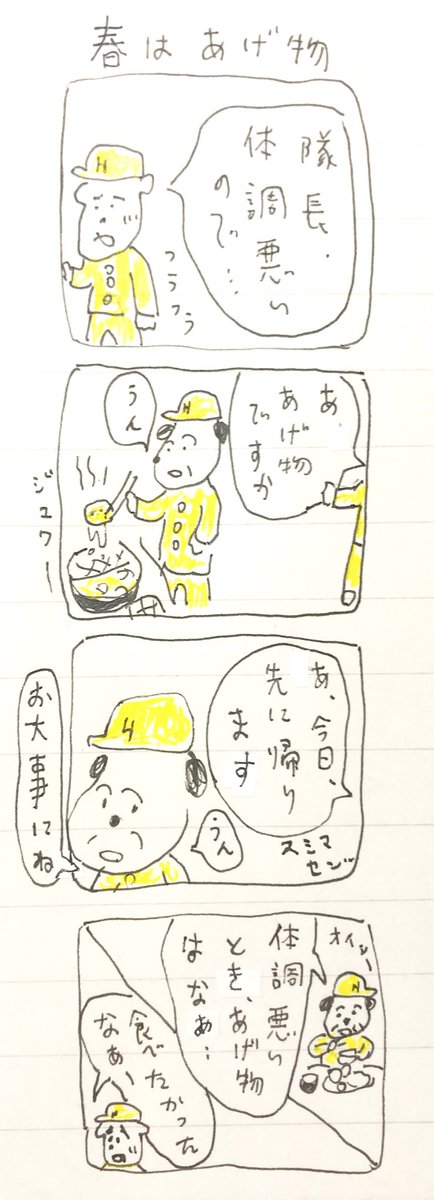 春はあげ物
H
隊長、
体調悪い
ので…
フラフラ
あ、
あげ物
ですか
H
うん
ジュワー
あ、今日、
先に帰り
ます
スミマ
セン
H
うん
お大事にね
オイシー
H
体調悪い
とき、あげ物
はなぁ…
食べたかった
なぁ、